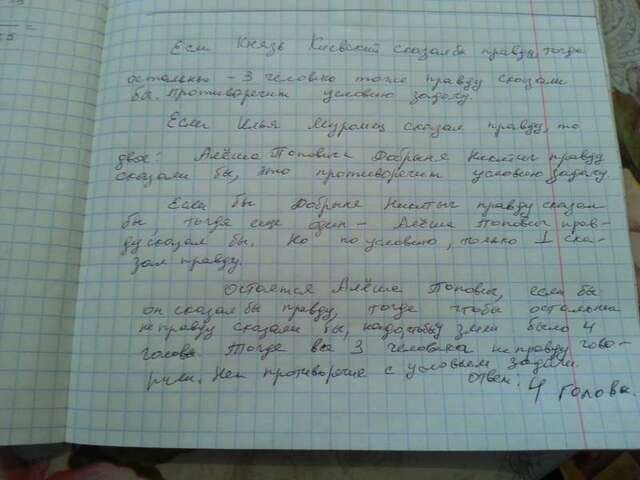 Если Князь Киевский сказал бы правду, тогда
остальные - 3 человека тоже правду сказали
бы. Противоречит условию задачу.
Если Илья Муромец сказал правду, то
двое: Алёша Попович Добрыня Никитич правду
сказали бы, что противоречит условию задачу.
Если бы Добрыня Никитич правду сказал
бы, тогда еще один - Алёша Попович прав-
ду сказал бы. Но по условию, только 1 ска-
зал правду.
Остается Алёша Попович, если бы
он сказал бы правду, тогда чтобы остальные
не правду сказали бы, надо, чтобы у змеи было 4
головы. Тогда все 3 человека не правду гово-
рили. Нет противоречие с условием задачи.
Ответ: 4 голова.